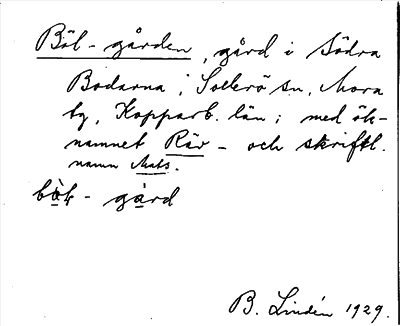 Böl-gården, gård i Södra
Bodarna, Sollerö sn, Mora
tg, Kopparb. län; med ök-
namnet Räv - och skriftl.
namn Mats.
gård
B. Lindén 1929.